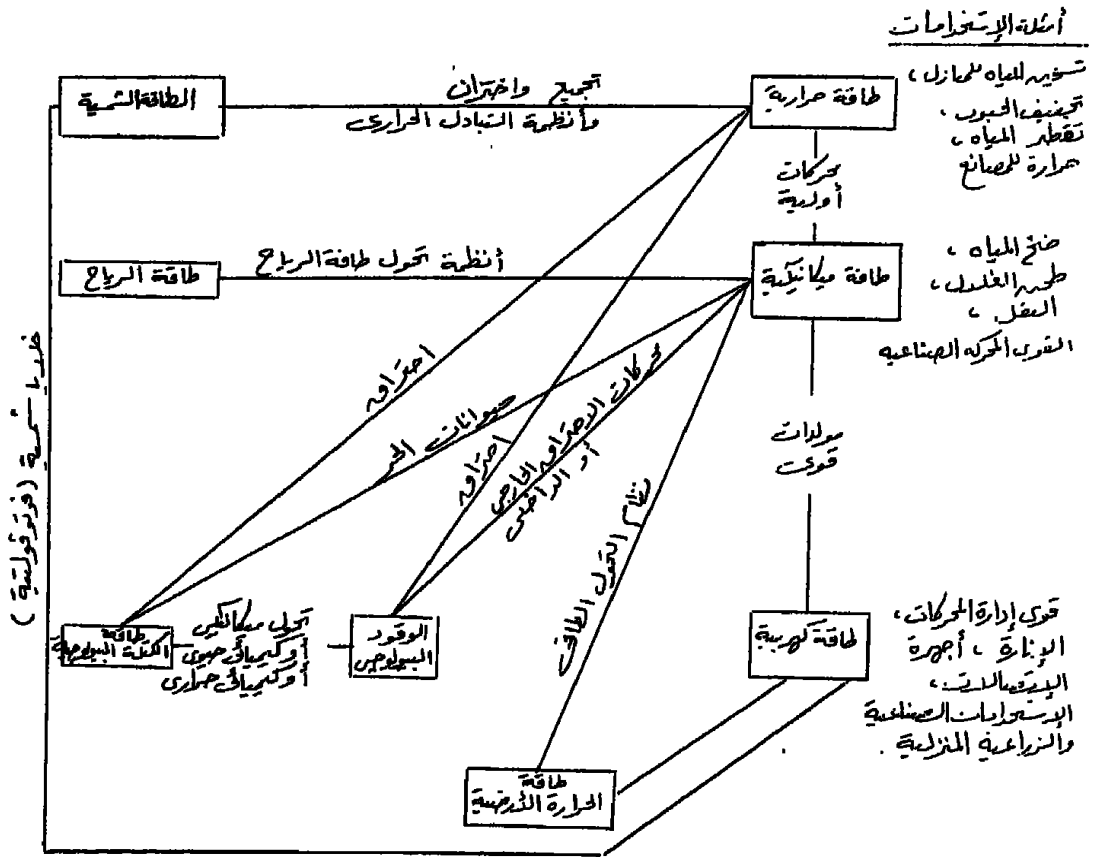 أمثلة الإستخدامات
الطاقة الشمسية
تجميع واختزان
وأنظمة التبادل الحرارى
طاقة حرارية
تسخين المياه للمنازل ،
تجفيف الحبوب ،
تقطير المياه ،
حرارة للمصانع
محركات
أولية
طاقة الرياح
أنظمة تحول طاقة الرياح
طاقة ميكانيكية
ضخ المياه ،
طحن الغلال ،
النقل ،
القوى المحركة الصناعية
احتراق
حيوانات الجر
احتراق
محركات الاحتراق الخارجى
أو الداخلى
نظام التحول الطاقى
مولدات
قوى
خلايا شمسية (فوتوفولتية)
طاقة
الكتلة البيولوجية
تحول ميكانيكى
أوكيميائى حيوى
أوكيميائى حرارى
الوقود
البيولوجى
طاقة كهربية
قوى إدارة المحركات ،
الإنارة ، أجهزة
الإتصالات ،
الاستخدامات الصناعية
والزراعية المنزلية .
طاقة
الحرارة الأرضية